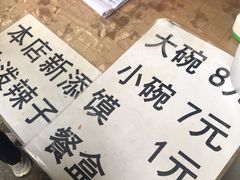 本店新添
油泼辣子
大碗 8元
小碗 7元
馍 1元
餐盒